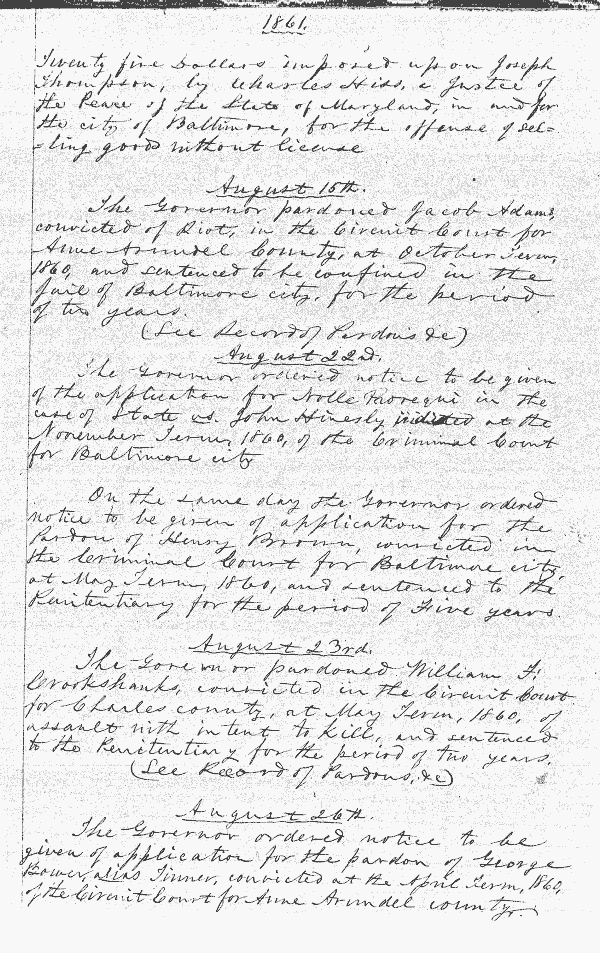 1861.
Twenty five Dollars imposed upon Joseph
Thompson, by Charles Hiss, a Justice of
the Peace of the State of Maryland, in and for
the city of Baltimore, for the offense of sel=
=ling goods without license
August 15th.
The Governor pardoned Jacob Adams,
convicted of Riot, in the Circuit Court for
Anne Arundel County, at October Term,
1860, and sentenced to be confined in the
jail of Baltimore city, for the period
of two years.
(See Record of Pardons &c)
August 22nd.
The Governor ordered notice to be given
of the application for Nolle Prosequi in the
case of State vs. John Hinesly indicted at the
November Term, 1860, of the Criminal Court
for Baltimore city
On the same day the Governor ordered
notice to be given of application for the
Pardon of Henry Brown, convicted in
the Criminal Court for Baltimore city,
at May Term, 1860, and sentenced to the
Penitentiary for the period of Five years.
August 23rd.
The Governor pardoned William F.
Crookshanks, convicted in the Circuit Court
for Charles county, at May Term, 1860, of
assault with intent to Kill, and sentenced
to the Penitentiary for the period of two years.
(See Record of Pardons, &c)
August 26th.
The Governor ordered notice to be
given of application for the pardon of George
Bower, alias Tinner, convicted at the April Term, 1860,
of the Circuit Court for Anne Arundel county.